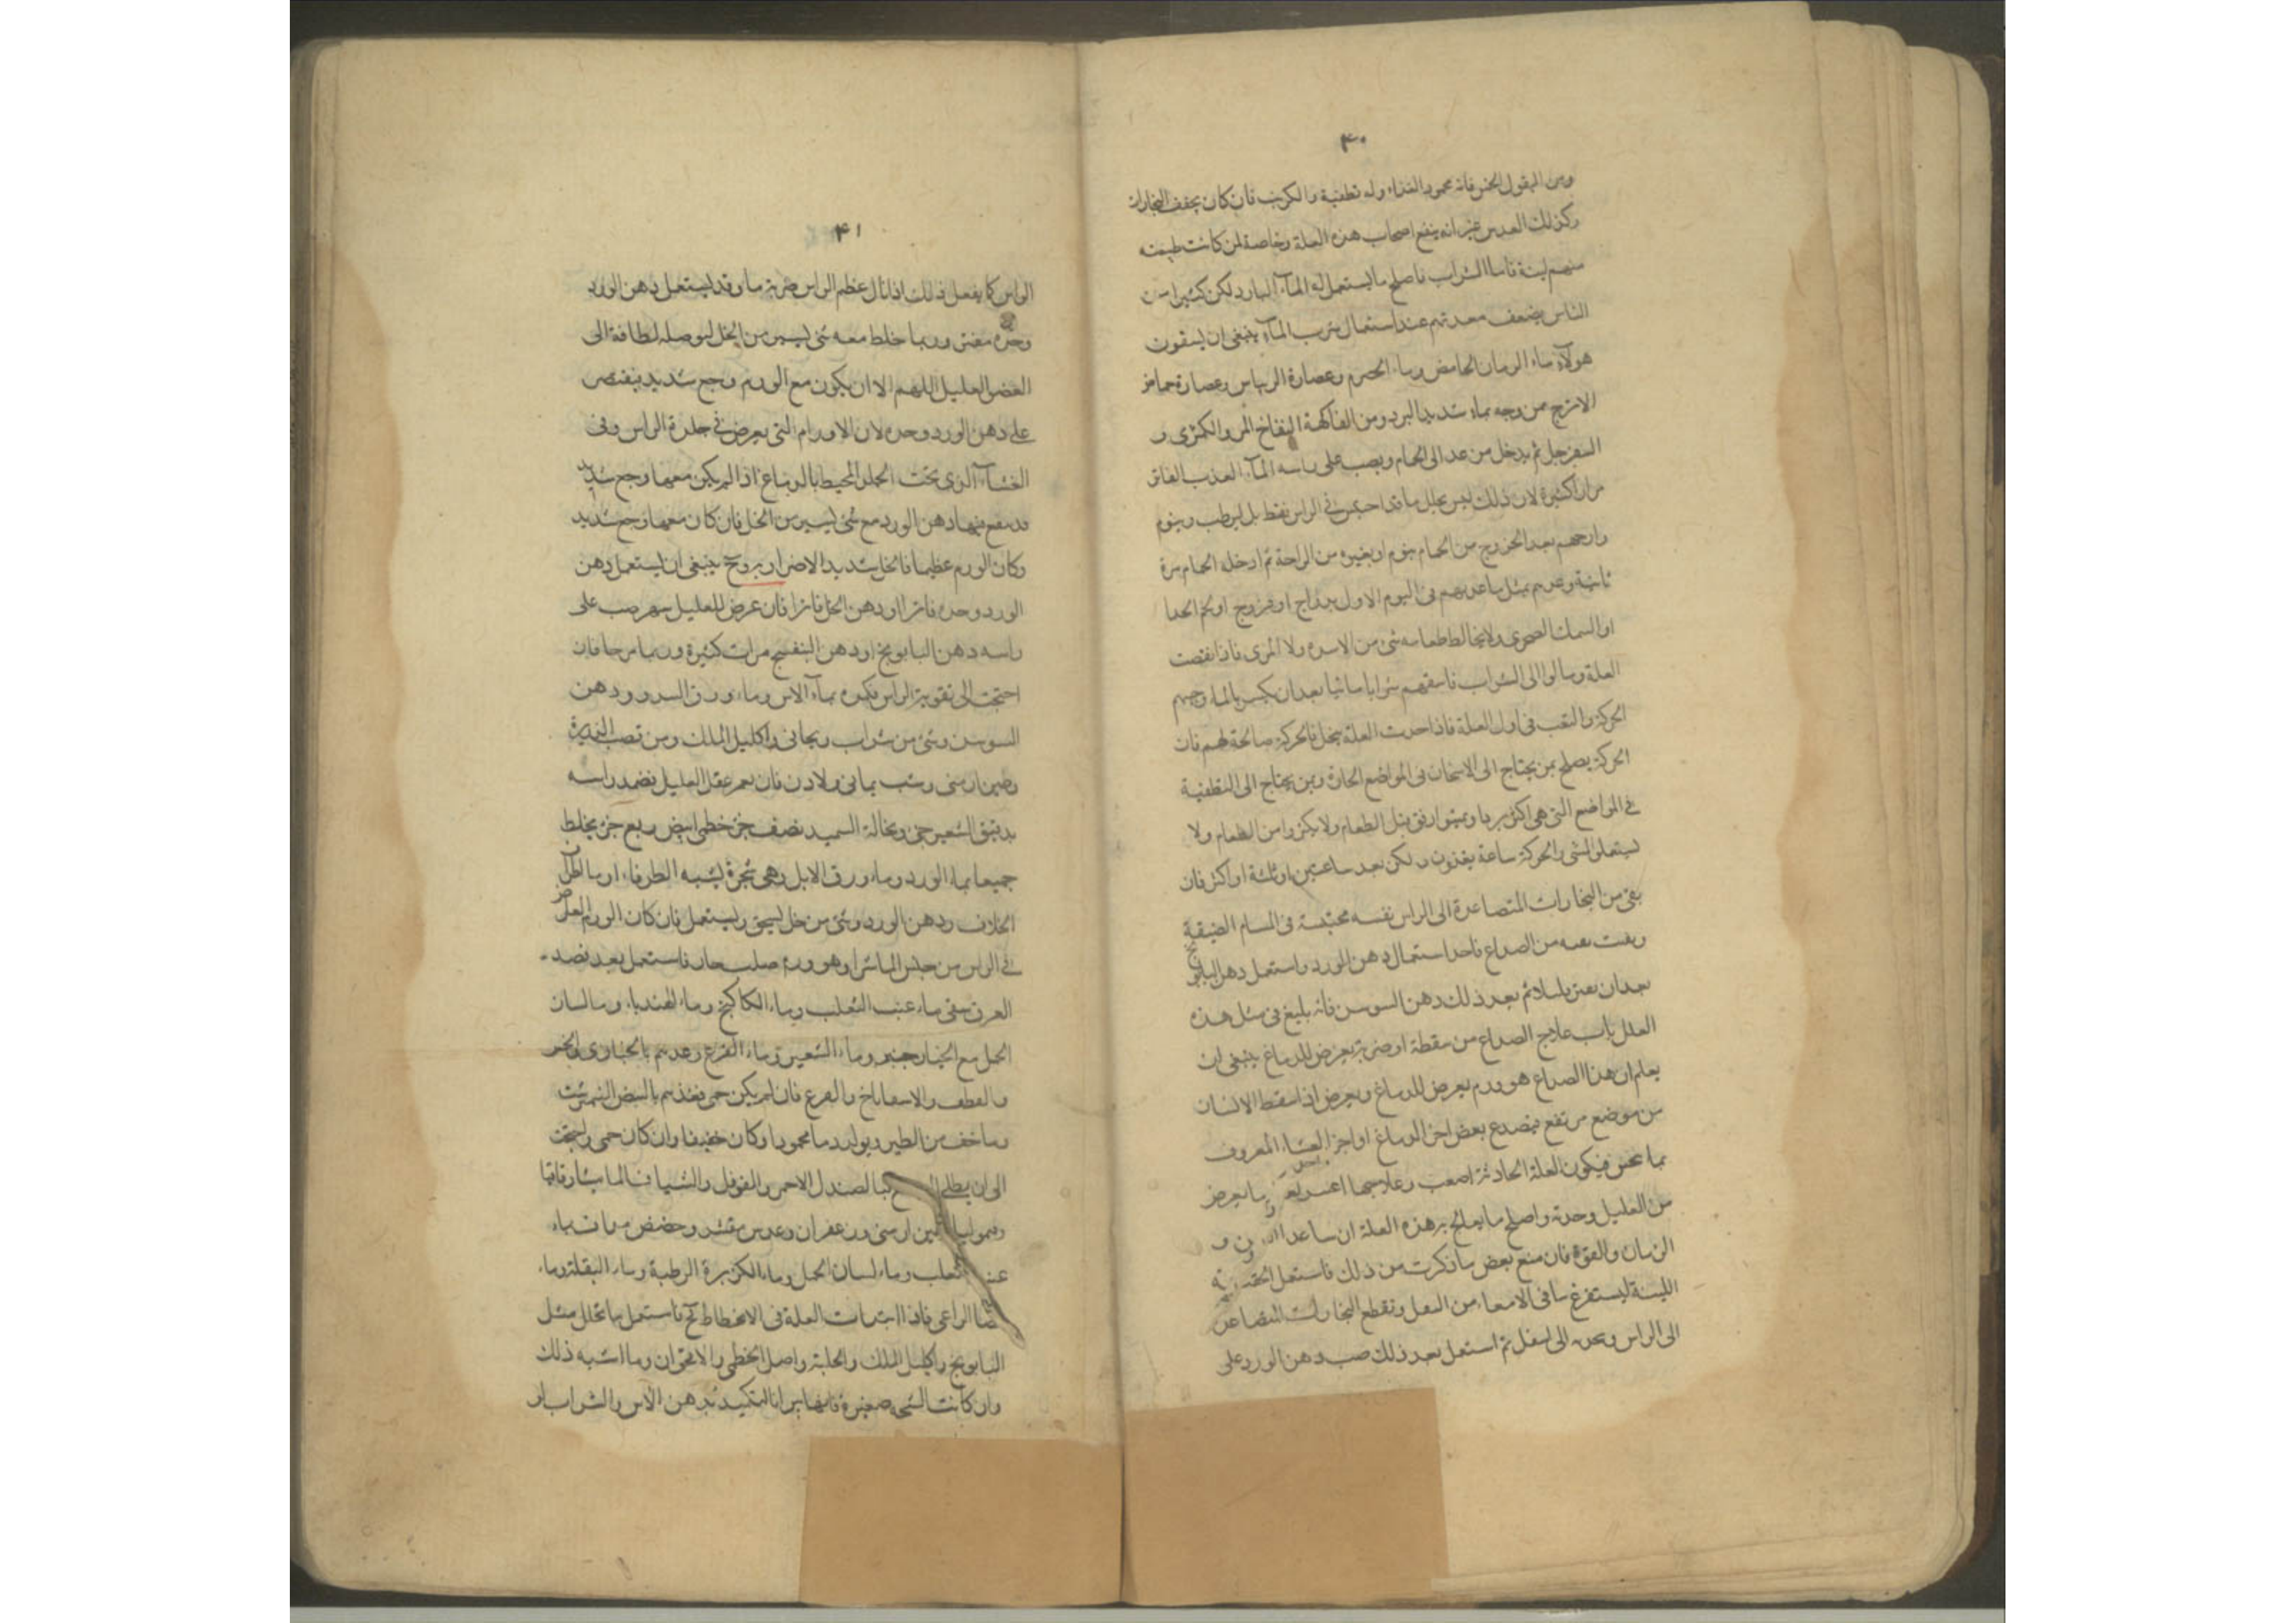 ۴۰
ومن البقول الخس فانه محمود الغذاء وله تطفية والكرنب فان كان يجفف البخارات
وكذلك العدس غير انه ينفع اصحاب هذه العلة وخاصة لمن كانت طبيعته
منهم لينة فاما الشراب فاصلح ما يستعمل له المآء البارد لكن كثيرا من
الناس يضعف معدتهم عند استعمال شرب المآء ينبغى ان يسقون
هولآء ماء الرمان الحامض وماء الحصرم وعصارة الريباس وعصارة حماض
الاترج ممزوجه بماء شديد البرد ومن الفاكهة التفاح المز والكمثرى و
السفرجل ثم يدخل من غد الى الحمام ويصب على راسه المآء العذب الفاتر
مرارا كثيرة لان ذلك ليس يحلل ما قد احتبس فى الراس فقط بل يرطب وينوم
وارحهم بعد الخروج من الحمام بنوم او بغيره من الراحة ثم ادخله الحمام مرة
ثانية وغدهم بمثل ما غدوتهم فى اليوم الاول بدراج او فروج او لحم الجدا
او السمك الصخرى ولا يخالط طعامه شى من الابزره ولا المرى فاذا نقصت
العلة ومالوا الى الشراب فاسقهم شرابا مائيا بعد ان يكسر بالماء وجنبهم
الحركة والتعب فى اول العلة فاذا اخذت العلة تنحل فالحركة صالحة لهم فان
الحركة يصلح بمن يحتاج الى الاسخان فى المواضع الحارة وبمن يحتاج الى التطفية
فى المواضع التى هى اكثر بردا ويمشوا برفق قبل الطعام ولا يكثروا من الطعام ولا
يستعملوا المشى والحركة ساعة يغذون ولكن بعد ساعتين او ثلثة او اكثر فان
بقى من البخارات المتصاعدة الى الراس نفسه محتبسة فى المسام الضيقة
وبقيت بقيه من الصداع فاحذ استعمال دهن الورد واستعمل دهن البابونج
بعد ان يفتر بلسلائم بعد ذلك دهن السوسن فانه بليغ فى مثل هذه
العلل باب علاج الصداع من سقطة او ضربة يعرض للدماغ ينبغى ان
يعلم ان هذا الصداع هو ورم يعرض للدماغ ويعرض اذا سقط الانسان
من موضع مرتفع فيصدع بعض اجزا الدماغ او اجزا الغشاء المعروف
فيكون العلة الحادثة اصعب وعلاجها اعسر وما يعرض
من العليل وحدته واصلح ما يعالج به هذه العلة ان ساعد و
الزمان والقوة فان منع بعض ما ذكرت من ذلك فاستعمل الحقنة
اللينة ليستفرغ ما فى الامعاء من الثفل وتقطع البخارات المتصاعدة
الى الراس الى اسفل ثم استعمل بعد ذلك صب دهن الورد على
۴۱
الراس كما يفعل ذلك اذا نال عظم الراس ضربة ما وقد يستعمل دهن الورد
وحده مفتر وربما خلط معه شى يسير من الخل ليوصله لطافة الى
العضو العليل اللهم الا ان يكون مع الورم وجع شديد فيقتصر
على دهن الورد وحده لان الاورام التى يعرض فى جلدة الراس وفى
الغشآء الذى تحت الجلد المحيط بالدماغ اذا لم يكن معها وجع شديد
قد ينفع منها دهن الورد مع شى يسير من الخل فان كان معها وجع شديد
وكان الورم عظيما فالخل شديد الاضرار به وح ينبغى ان يستعمل دهن
الورد وحده فاترا او دهن الخل فاترا فان عرض للعليل سهر صب على
راسه دهن البابونج او دهن البنفسج مرات كثيرة وربما مرخا فان
احتجت الى تقوية الراس فكمده بمآء الاس وماء ورق السرو ودهن
السوسن وشى من شراب ريحانى واكليل الملك ومن قصب الذريرة
وطين ارمنى وشب يمانى ولادن فان تغير عقل العليل فضمد راسه
بدقيق الشعير جزؤ ونخالة السميد نصف جزؤ خطمى ابيض ربع جزؤ يخلط
جميعا بماء الورد وماء ورق الابل وهى شجرة يشبه الطرفاء او ماء
الخلاف ودهن الورد وشى من خل يسحق ويستعمل فان كان الورم العارض
فى الراس من جنس الماشرا وهو ورم صلب حار فاستعمل بعد فصد
العرق سقى ماء عنب الثعلب وماء الكاكنج وماء الهندباء وماء لسان
الحمل مع الخيار شنبر وماء الشعير وماء القرع وغدهم بالخبازى والخس
والقطف والاسفاناخ والقرع فان لم يكن حمى فغذهم بالبيض النيمرشت
وما خف من الطير ويولد دما محمودا وكان خفيفا وان كان حمى واحتجت
الى ان يطلى بالصندل الاحمر والفوفل والشياف الماميثا وقاقيا
وقيموليا وطين ارمنى وزعفران وعدس مقشر وحضض مداف بماء
عنب الثعلب وماء لسان الحمل وماء الكزبرة الرطبة وماء البقلة وماء
عصا الراعى فاذا ابتدات العلة فى الانحطاط فح فاستعمل ما تحلل مثل
البابونج واكليل الملك والحلبة واصل الخطمى والاقحوان وما اشبه ذلك
وان كانت الشجه صغيرة فانها يبرانا التكميد بدهن الاس والشراب او